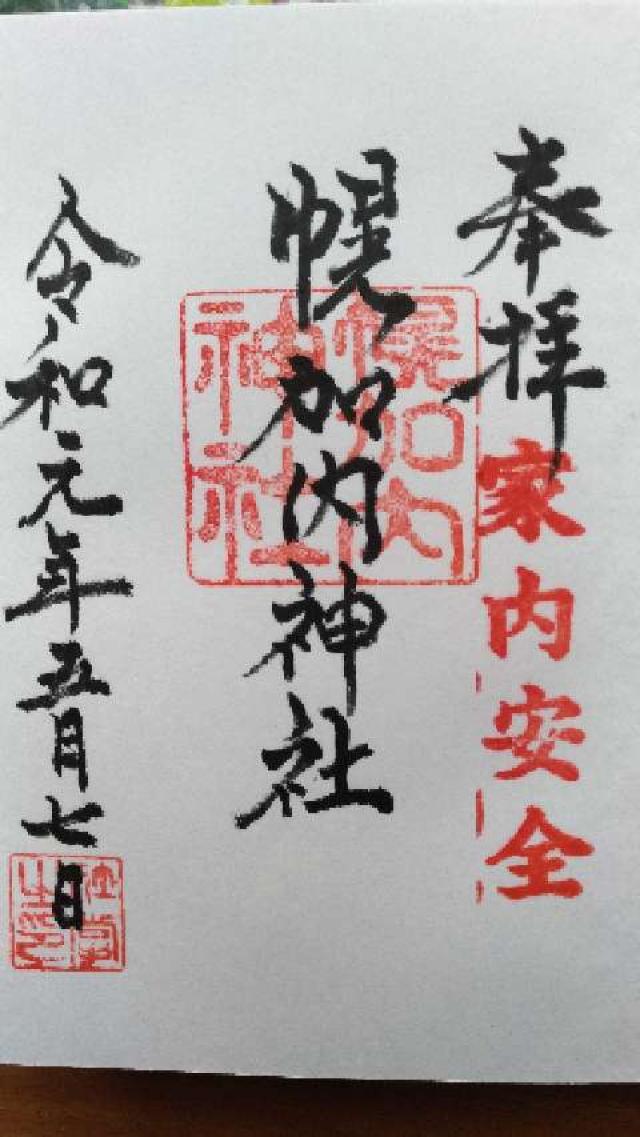 奉拝
家内安全
幌加内神社
幌加内
神社
令和元年五月七日